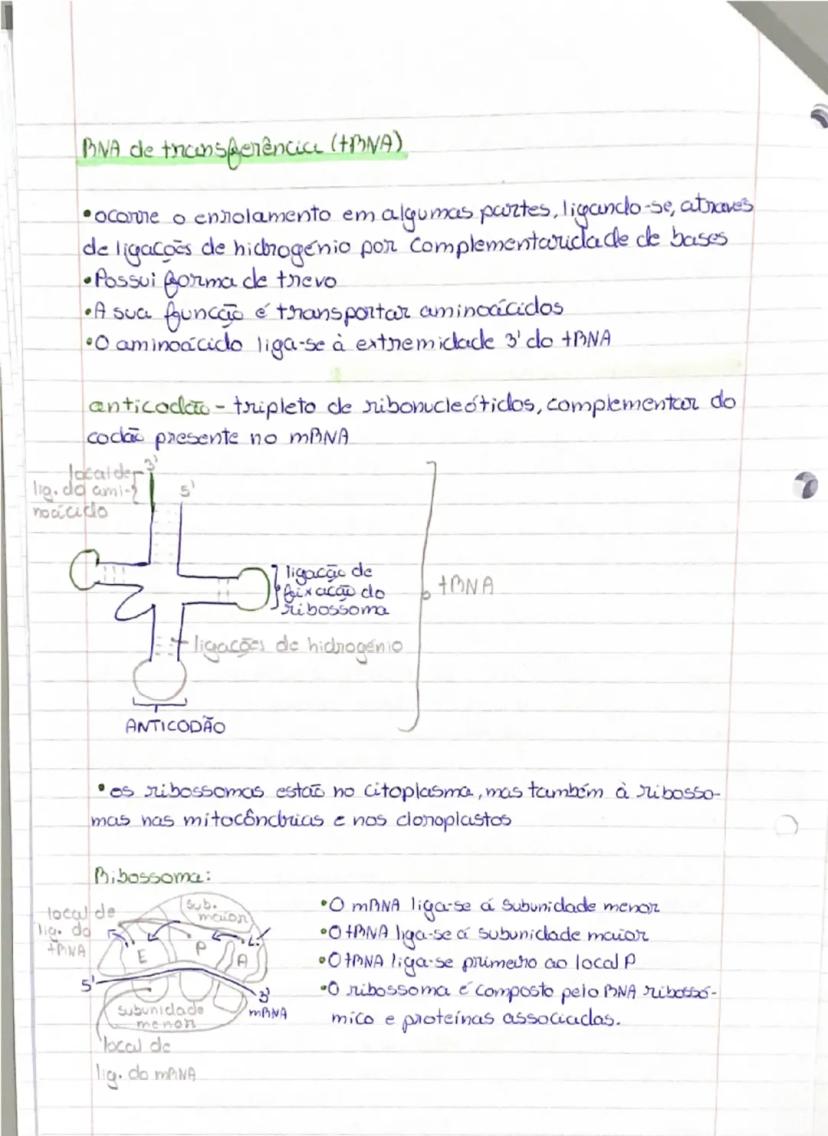 RNA de transferência (tRNA)
•ocorre o enrolamento em algumas partes, ligando-se, atraves
de ligações de hidrogénio por complementaridade de bases
•Possui forma de trevo
•A sua função é transportar aminoácidos
•O aminoácido liga-se à extremidade 3' do tRNA
anticodão - tripleto de ribonucleótidos, complementar do
codão presente no mRNA
local de
lig. do ami-
noácido
3'
5'
ligação de
fixação do
ribossoma
tRNA
ligações de hidrogénio
ANTICODÃO
•os ribossomas estão no citoplasma, mas também à ribosso-
mas nas mitocôndrias e nos cloroplastos
Ribossoma:
local de
lig. do
tRNA
sub.
maior
E
P
A
5'
3'
mRNA
subunidade
menor
local de
lig. do mRNA
•O mRNA liga-se á subunidade menor
•O tRNA liga-se á subunidade maior
•O tRNA liga-se primeiro ao local P
•O ribossoma é composto pelo RNA ribossó-
mico e proteínas associadas.